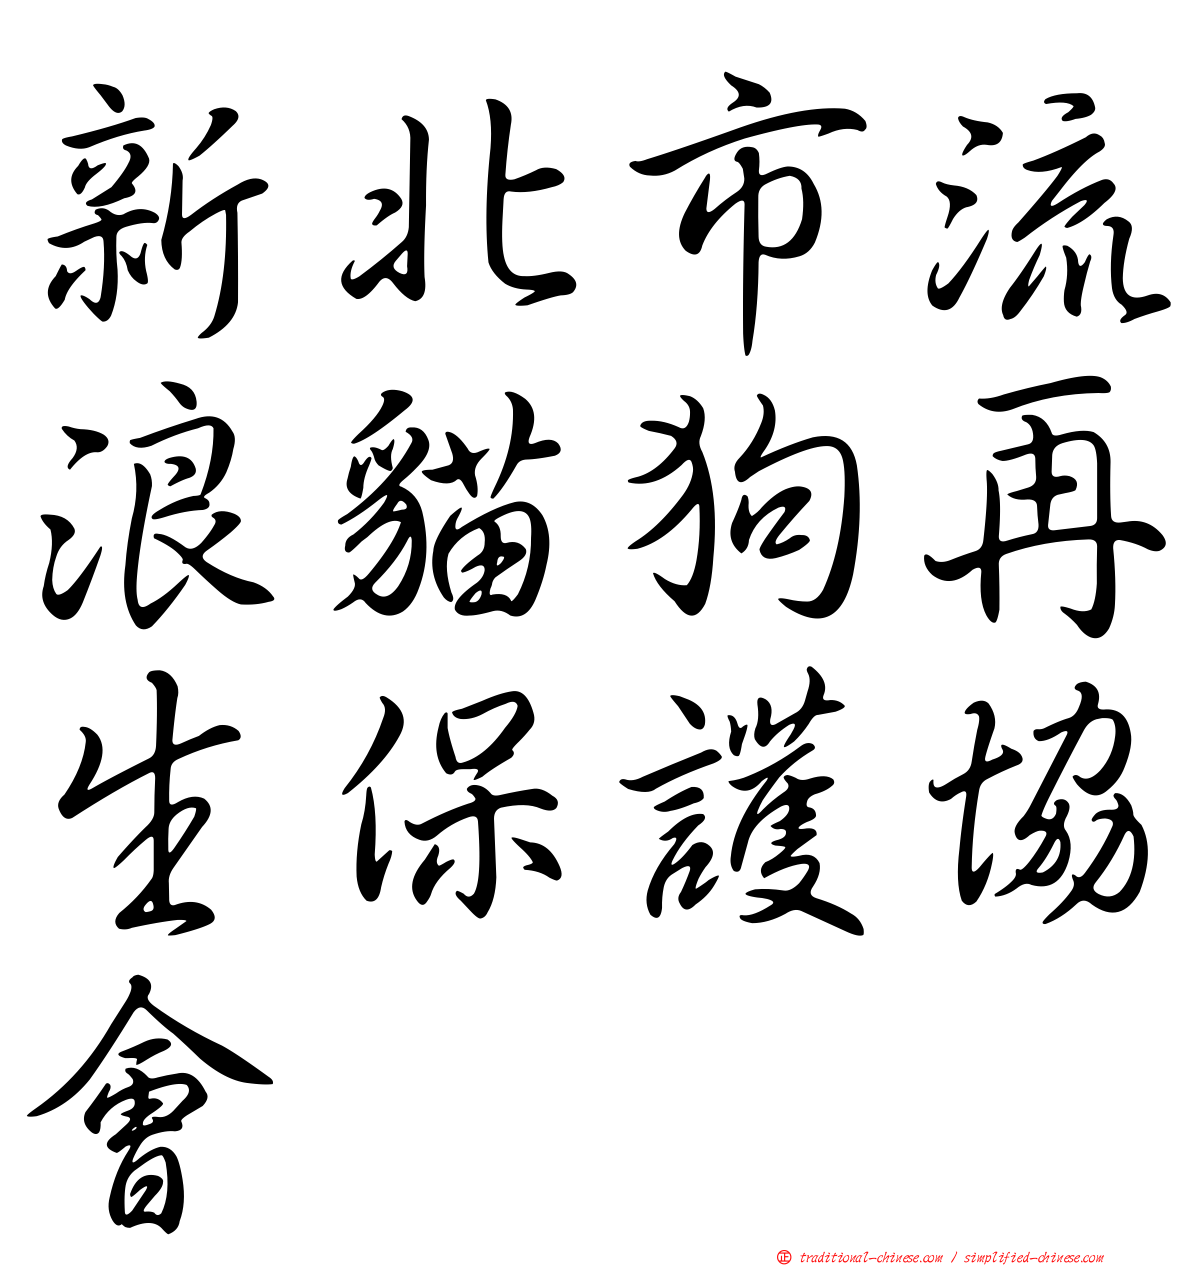 新北市流
浪貓狗再
生保護協
會
正 traditional-chinese.com / simplified-chinese.com